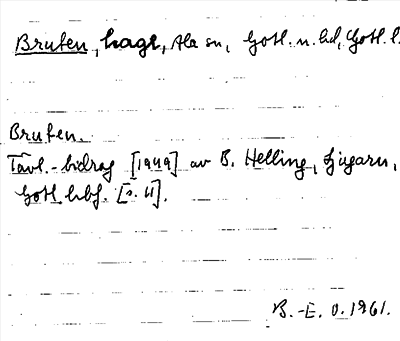 Bruten, hage, Ala sn, Gotl. n. hd, Gotl. l.
Bruten.
Tävl.-bidrag [1949] av B. Helling, Ljugarn,
Gotl. lvbf. [s. 11].
B.-E. O. 1961.